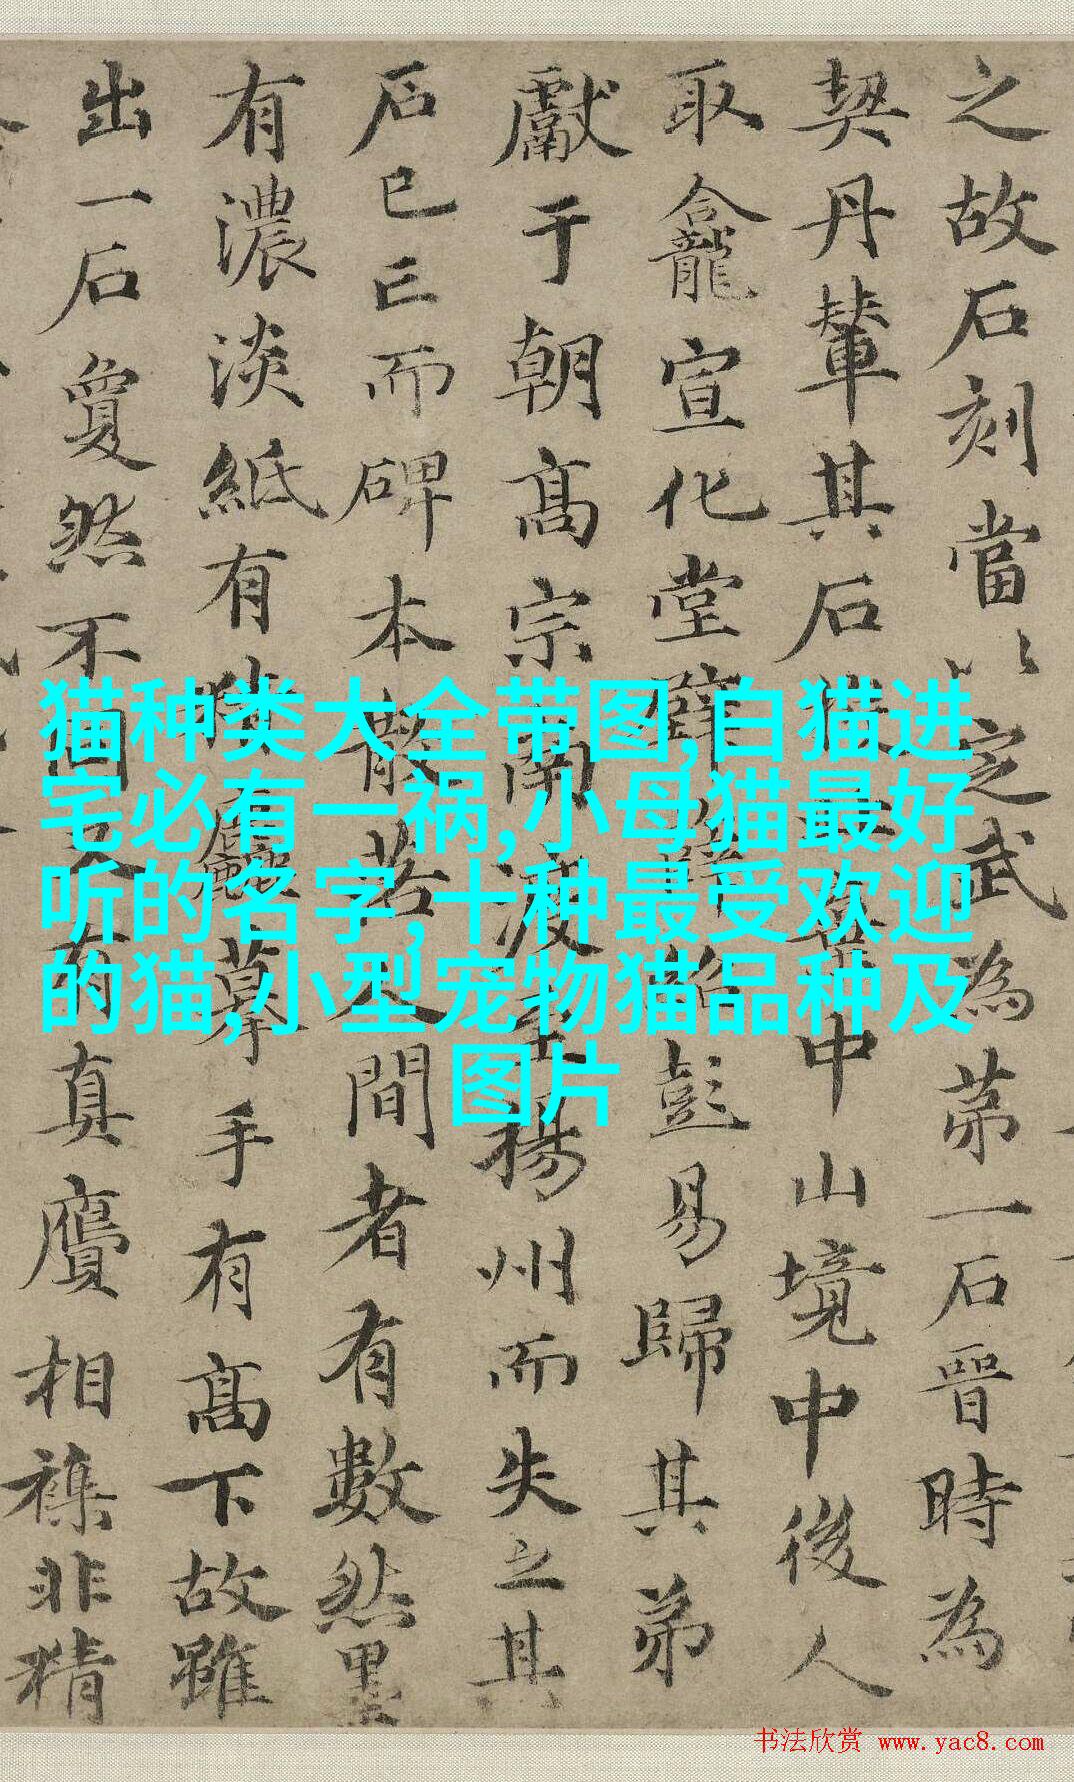 之故石刻當以定武為苐一石晉時為
契丹輦其石中山境中後人
取龕宣化堂壁紹彭易歸其弟
獻于朝高宗南渡至揚州而失之其
石已亡而碑本散落人間者有數然墨
有濃淡紙有麤摹手有高下故雖
出一石夐然不同又有真贗相襍非精
猫种类大全带图,白猫进
宅必有一祸,小母猫最好
听的名字,十种最受欢迎
的猫,小型宠物猫品种及
图片
书法欣赏 www.yac8.com